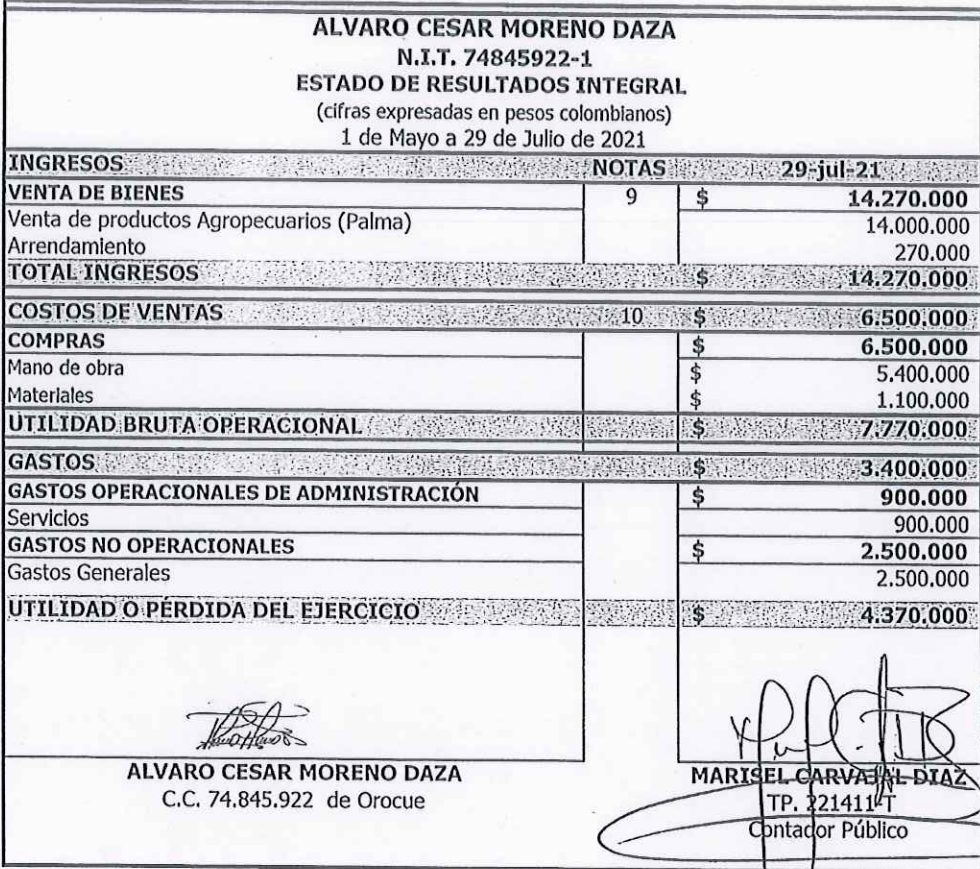 ALVARO CESAR MORENO DAZA
N.I.T. 74845922-1
ESTADO DE RESULTADOS INTEGRAL
(cifras expresadas en pesos colombianos)
1 de Mayo a 29 de Julio de 2021
INGRESOS NOTAS 29-jul-21
VENTA DE BIENES 9 $ 14.270.000
Venta de productos Agropecuarios (Palma) 14.000.000
Arrendamiento 270.000
TOTAL INGRESOS $ 14.270.000
COSTOS DE VENTAS 10 $ 6.500.000
COMPRAS $ 6.500.000
Mano de obra $ 5.400.000
Materiales $ 1.100.000
UTILIDAD BRUTA OPERACIONAL $ 7.770.000
GASTOS $ 3.400.000
GASTOS OPERACIONALES DE ADMINISTRACIÓN $ 900.000
Servicios 900.000
GASTOS NO OPERACIONALES $ 2.500.000
Gastos Generales 2.500.000
UTILIDAD O PÉRDIDA DEL EJERCICIO $ 4.370.000
ALVARO CESAR MORENO DAZA MARISEL CARVAJAL DIAZ
C.C. 74.845.922 de Orocue TP. 221411-T
Contador Público